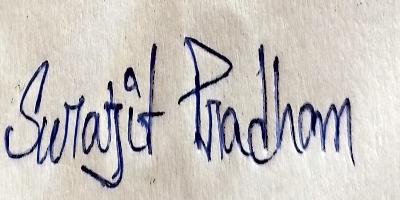 Surajit Pradham